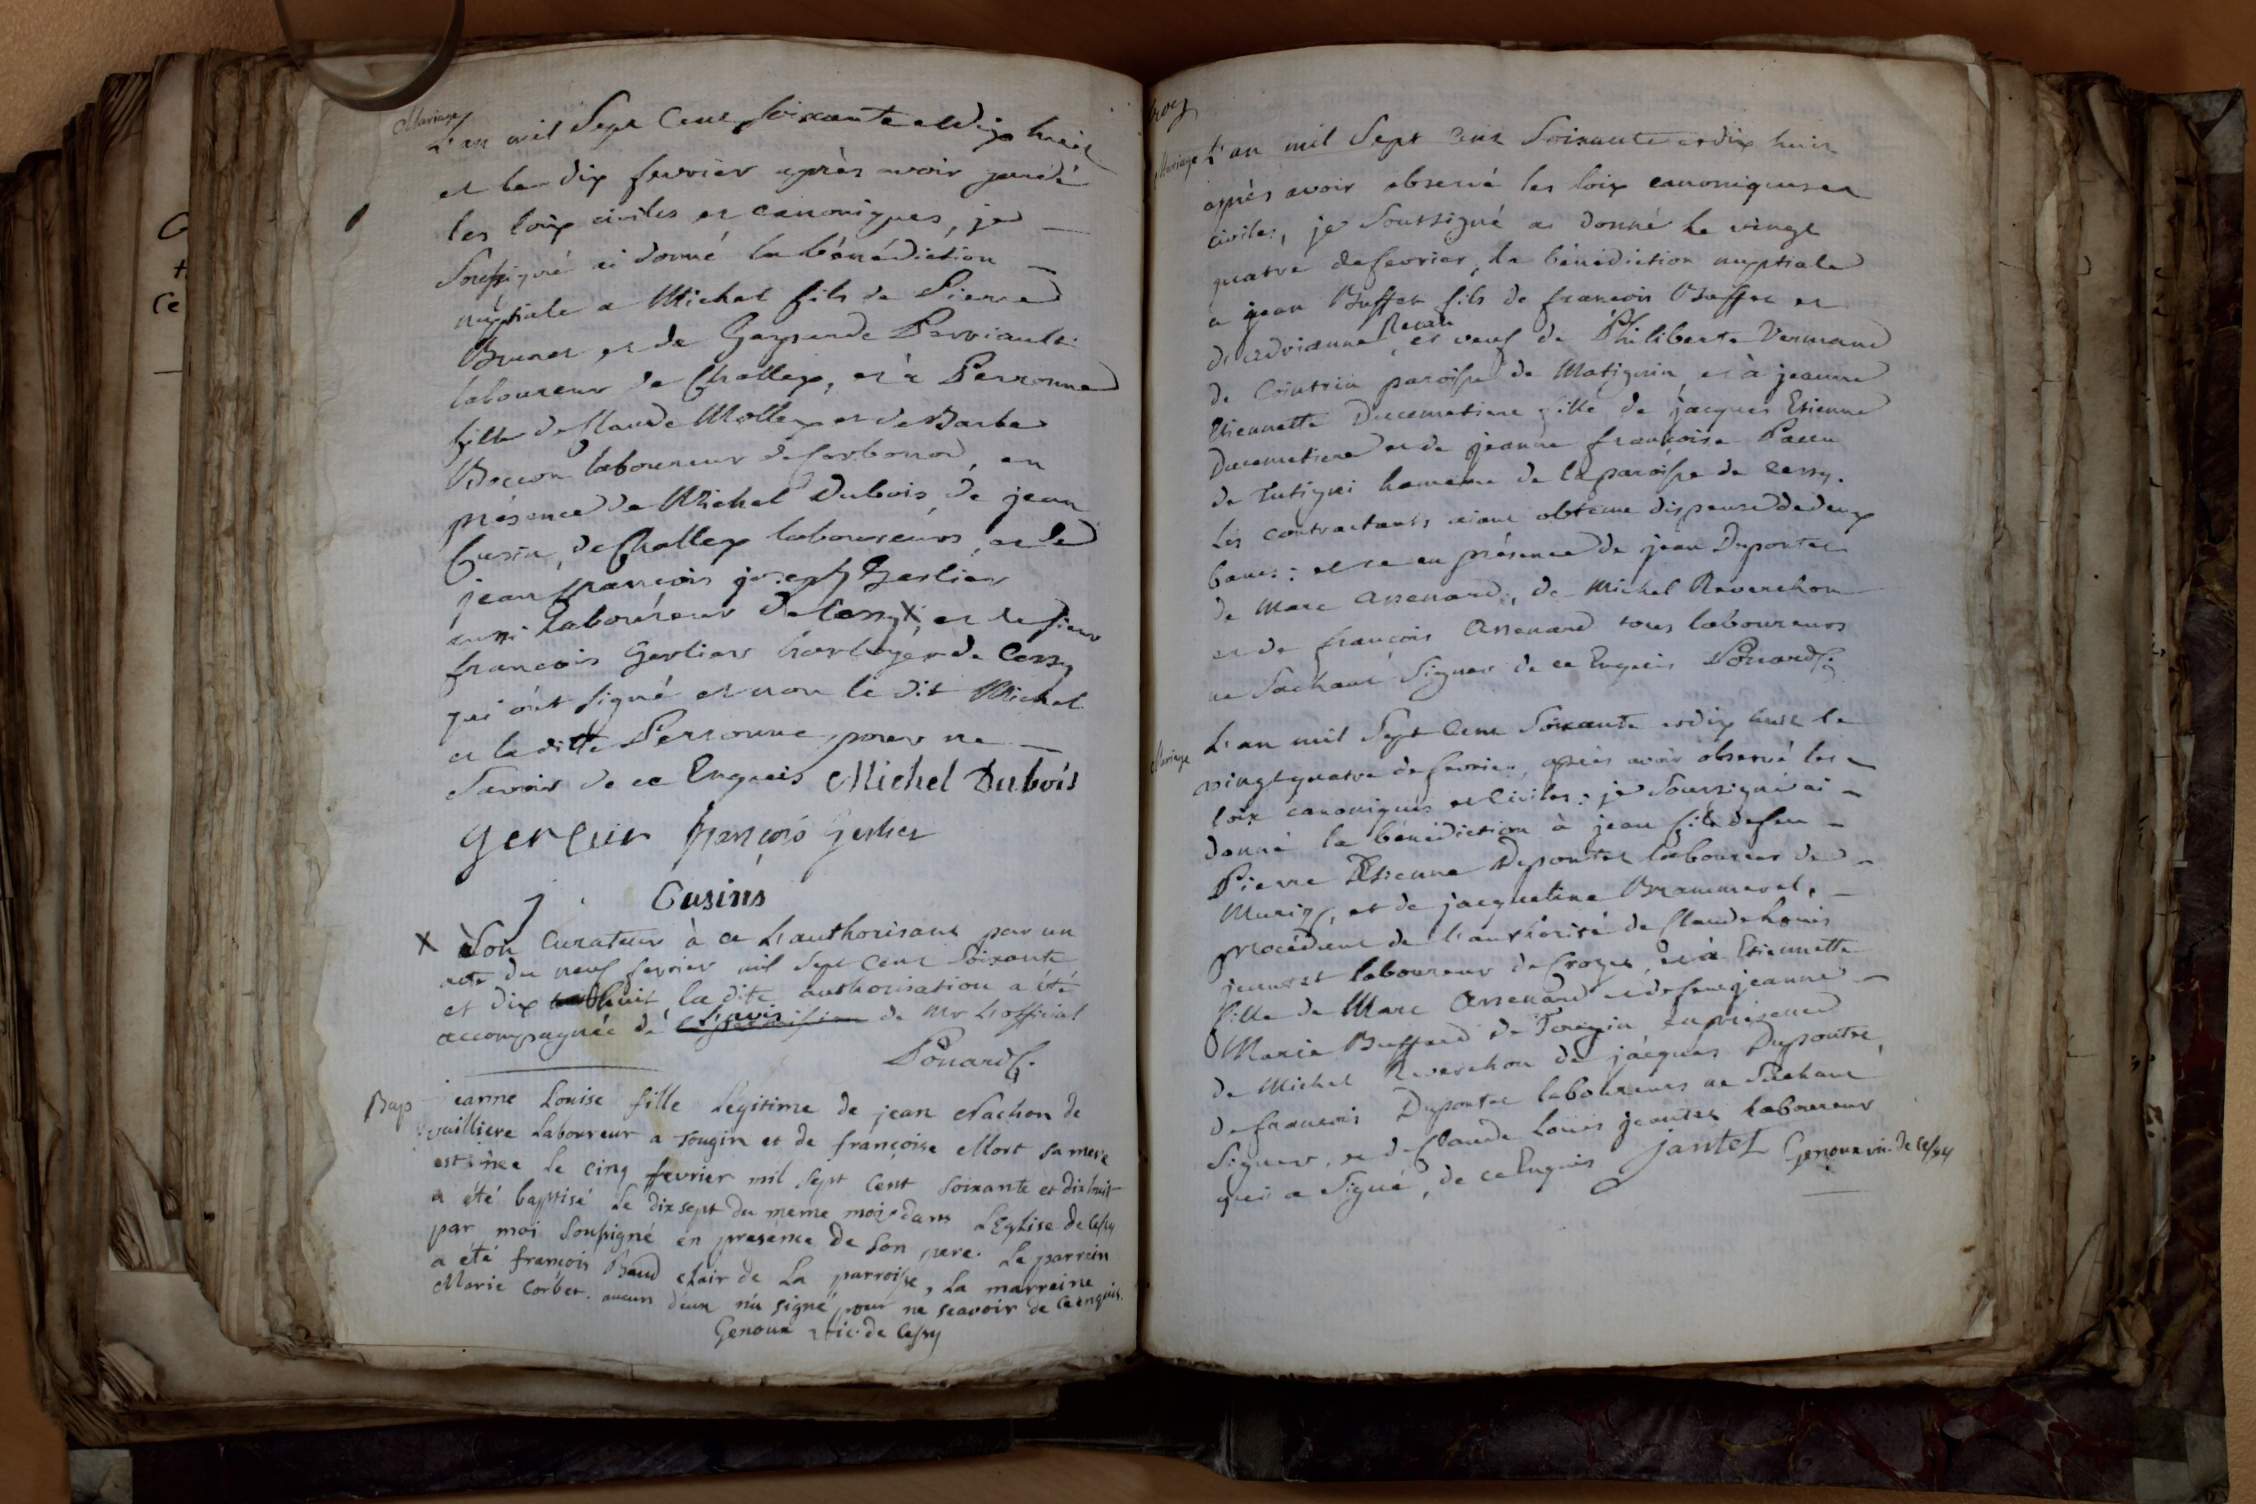 Mariage
L'an mil Sept Cent soixante et dix huit
et le dix fevrier après avoir gardé
les loix civiles et canoniques, je
Soussigné ai donné la bénédiction
nuptiale a Michel fils de Pierre
Brunet et de Gasparde Perriault
laboureur de Challex, et à Perronne
fille de Claude Mollex et de Barbe
Boccon laboureur de Sorbonod, en
présence de Michel Dubois, de jean
Cusin, de Challex laboureurs, et de
jean françois joseph Gerlier
aussi Laboureur de Cessy X, et de sieur
francois Gerlier horloger de Cessy
qui ont signé et non le dit Michel
et la ditte Perronne, pour ne
Savoir de ce Enquis Michel Dubois
gerlier françois Gerlier
j. Cusins
X Son Curateur à ce L'authorisant par un
acte du neuf fevrier mil Sept Cent Soixante
et dix huit la dite authorisation a été
accompagnée de L'avis de Mr L'official
Ponard C.
Bap
jeanne Louise fille Légitime de jean Nachon de
vuilliere Laboureur a Tougin et de françoise Mort sa mere
est née le cinq fevrier mil sept Cent Soixante et dix huit
a été baptisé Le dix sept du meme mois dans L'Eglise de Cessy
par moi Soussigné en presence de Son pere. Le parrein
a eté françois Baud clair de La parroisse, La marreine
Marie Corbet. aucun d'eux n'a signé pour ne scavoir de ce enquis.
Genoux vic. de Cessy
Mariage
L'an mil Sept Cent Soixante et dix huit
après avoir observé les loix canoniques et
civiles, je Soussigné ai donné le vingt
quatre de fevrier, la bénédiction nuptiale
a jean Buffet fils de francois Buffet et
d'Adrianne Revet, et veuf de Philiberte Vermand
de Cointrin paroisse de Matignin, et à jeanne
Etiennette Ducemetiere fille de jacques Etienne
Ducemetiere et de jeanne françoise Paccu
de Tutigni hameau de la paroisse de Cessy.
Les contractants aiant obtenu dispense de deux
bancs: et ce en présence de jean Dupontet
de Marc Assenard, de Michel Reverchon
et de françois Assenard tous laboureurs
ne Sachant Signer de ce Enquis Ponard C.
Mariage
L'an mil Sept Cent Soixante et dix huit le
vingt quatre de fevrier, après avoir observé les
loix canoniques et Civiles: je Soussigné ai
donné la bénédiction à jean fils de feu
Pierre Etienne Dupontet laboureur de
Murig, et de jacqueline Brammerel,
procédant de l'authorité de Claude Louis
jeantet laboureur de Crozet, et à Etiennette
fille de Marc Assenard et de feue jeanne
Marie Buffard de Tougin, en présence
de Michel Reverchon de jacques Dupontet,
de francois Dupontet laboureurs ne Sachant
Signer, et de Claude Louis jeantet laboureur
qui a Signé, de ce Enquis jantet Genoux vic. de Cessy